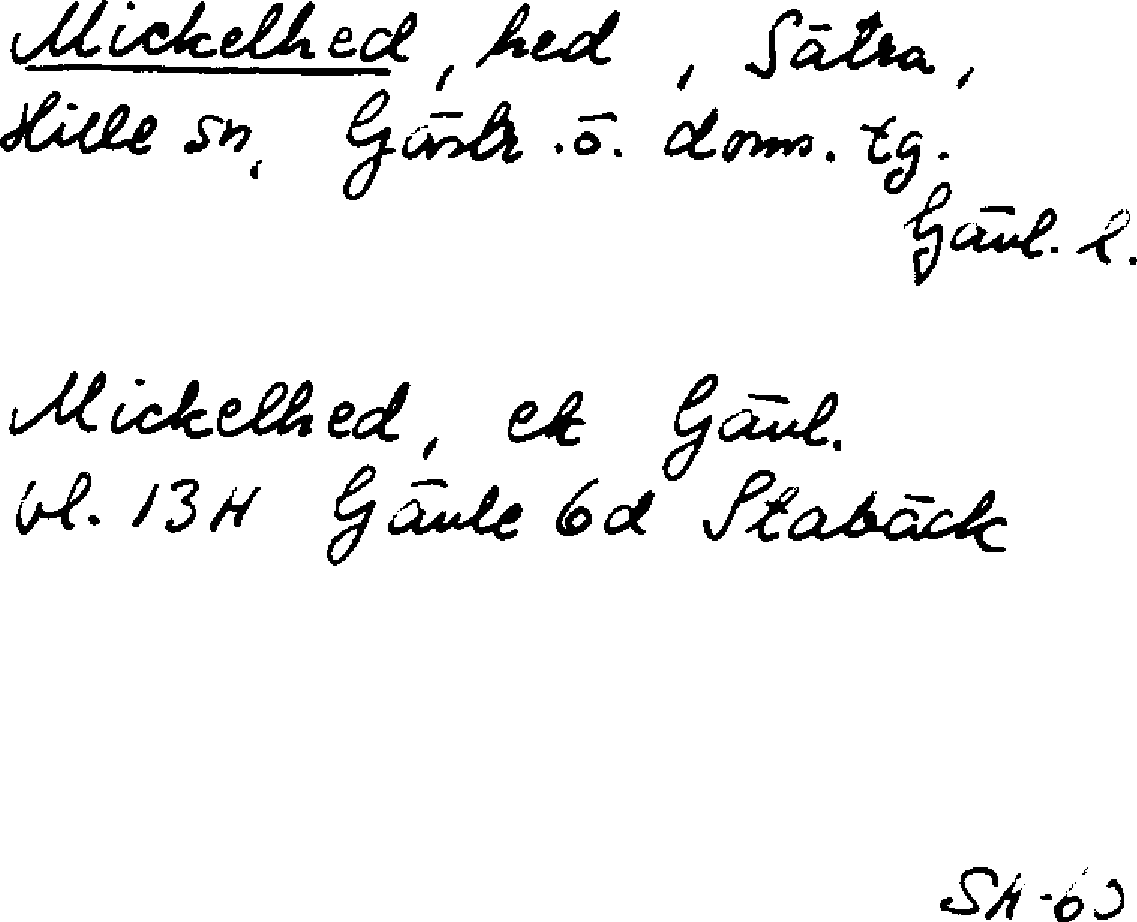 Mickelhed, hed, Sätra,
Hille sn, Gästr. ö. doms. tg.
Gävl. l.
Mickelhed, ek Gävl.
bl. 13H Gävle 6d Stabäck